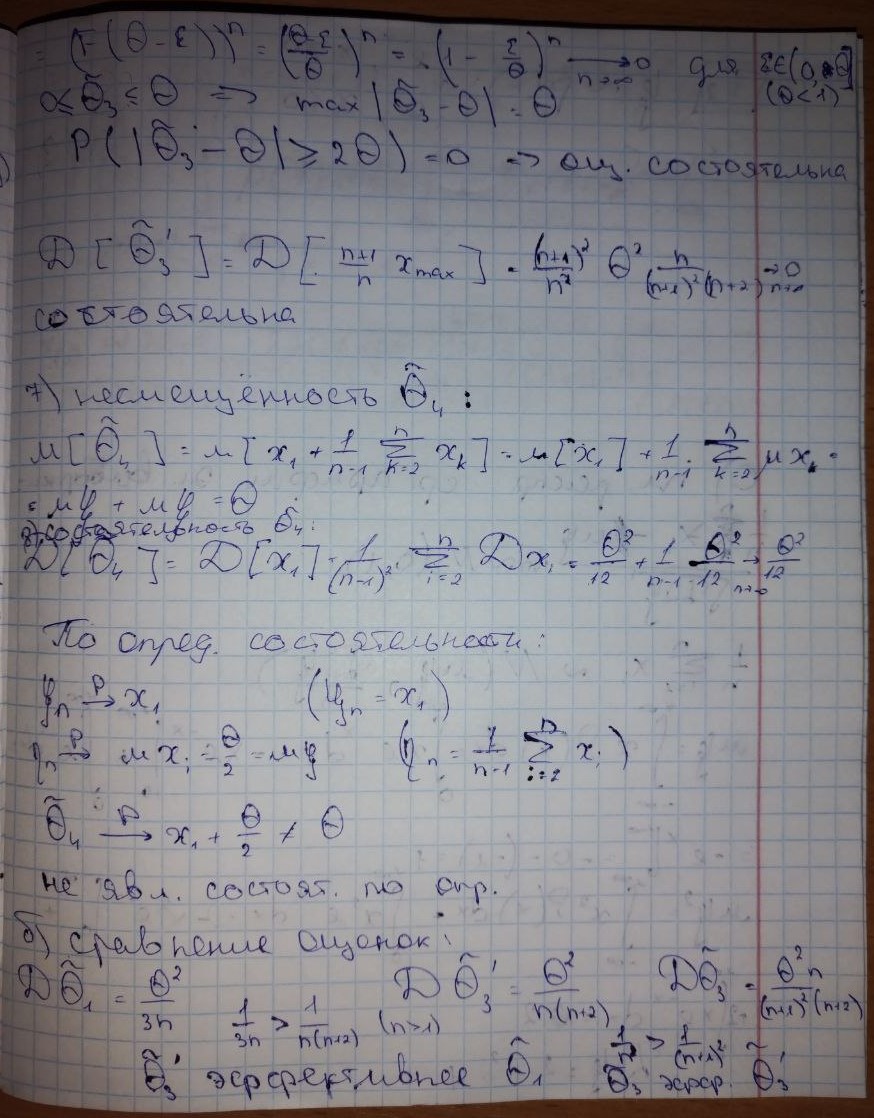 = (F(Θ-ε))ⁿ = ((Θ-ε)/Θ)ⁿ = (1 - ε/Θ)ⁿ →_{n→∞} 0 для ε∈(0, Θ]
0 ≤ Θ̃₃ ≤ Θ => max|Θ̃₃ - Θ| = Θ (Θ<1)
P(|Θ̃₃ - Θ| ≥ 2Θ) = 0 => оц. состоятельна
D[Θ̃₃'] = D[(n+1)/n x_max] = (n+1)²/n² Θ² n/((n+1)²(n+2)) →_{n→∞} 0
состоятельна
7) несмещённость Θ̃₄:
M[Θ̃₄] = M[x₁ + 1/(n-1) Σ_{k=2}^{n} x_k] = M[x₁] + 1/(n-1) · Σ_{k=2}^{n} M x_k =
= Mξ + Mξ = Θ
8) состоятельность Θ̃₄:
D[Θ̃₄] = D[x₁] + 1/(n-1)² · Σ_{i=2}^{n} D x_i = Θ²/12 + 1/(n-1) · Θ²/12 →_{n→∞} Θ²/12
По опред. состоятельности:
ξ_n →^P x₁ (ξ_n = x₁)
η_n →^P M x_i = Θ/2 = Mξ (η_n = 1/(n-1) Σ_{i=2}^{n} x_i)
Θ̃₄ →^P x₁ + Θ/2 ≠ Θ
не явл. состоят. по опр.
б) сравнение оценок:
DΘ̃₁ = Θ²/3n DΘ̃₃' = Θ²/(n(n+2)) DΘ̃₃ = Θ²n/((n+1)²(n+2))
1/3n > 1/(n(n+2)) (n>1) 1/n² > 1/(n+1)²
Θ̃₃' эффективнее Θ̃₁ Θ̃₃ эфф. Θ̃₃'